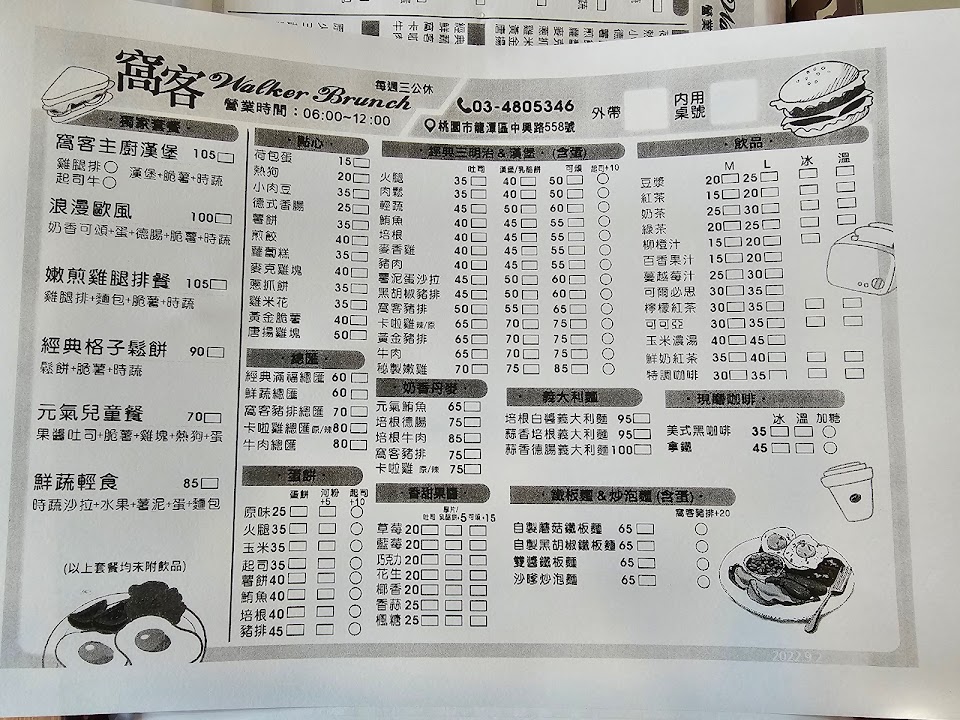 窩客 Walker Brunch
每週三公休
營業時間：06:00~12:00
03-4805346
桃園市龍潭區中興路558號
外帶
內用
桌號
獨家套餐
窩客主廚漢堡 105
雞腿排
起司牛
漢堡+脆薯+時蔬
浪漫歐風 100
奶香可頌+蛋+德腸+脆薯+時蔬
嫩煎雞腿排餐 105
雞腿排+麵包+脆薯+時蔬
經典格子鬆餅 90
鬆餅+脆薯+時蔬
元氣兒童餐 70
果醬吐司+脆薯+雞塊+熱狗+蛋
鮮蔬輕食 85
時蔬沙拉+水果+薯泥+蛋+麵包
(以上套餐均未附飲品)
點心
荷包蛋 15
熱狗 20
小肉豆 35
德式香腸 25
薯餅 35
煎餃 40
蘿蔔糕 35
麥克雞塊 40
蔥抓餅 35
雞米花 35
黃金脆薯 40
唐揚雞塊 50
總匯
經典滿福總匯 60
鮮蔬總匯 60
窩客豬排總匯 70
卡啦雞總匯原/辣 80
牛肉總匯 80
蛋餅
蛋餅 河粉+5 起司+10
原味 25
火腿 35
玉米 35
起司 35
薯餅 40
鮪魚 40
培根 40
豬排 45
經典三明治&漢堡(含蛋)
吐司 漢堡/乳酪餅 可頌 起司+10
火腿 35 40 50
肉鬆 35 40 50
輕蔬 45 50 60
鮪魚 40 45 55
培根 40 45 55
麥香雞 40 45 55
豬肉 40 45 55
薯泥蛋沙拉 45 50 60
黑胡椒豬排 45 50 60
窩客豬排 50 55 65
卡啦雞辣/原 65 70 75
黃金豬排 65 70 75
牛肉 65 70 75
秘製嫩雞 70 75 85
奶香丹麥
元氣鮪魚 65
培根德腸 75
培根牛肉 85
窩客豬排 75
卡啦雞 原/辣 75
香甜果醬
厚片/
吐司 乳酪餅+5 可頌+15
草莓 20
藍莓 20
巧克力 20
花生 20
椰香 20
香蒜 25
楓糖 25
義大利麵
培根白醬義大利麵 95
蒜香培根義大利麵 95
蒜香德腸義大利麵 100
鐵板麵&炒泡麵(含蛋)
窩客豬排+20
自製蘑菇鐵板麵 65
自製黑胡椒鐵板麵 65
雙醬鐵板麵 65
沙嗲炒泡麵 65
飲品
M L 冰 溫
豆漿 20 25
紅茶 15 20
奶茶 25 30
綠茶 15 20
柳橙汁 15 20
百香果汁 15 20
蔓越莓汁 25 30
可爾必思 30 35
檸檬紅茶 30 35
可可亞 30 35
玉米濃湯 30 40
鮮奶紅茶 35 40
特調咖啡 30 35
現磨咖啡
冰 溫 加糖
美式黑咖啡 35
拿鐵 45
2022.9.2